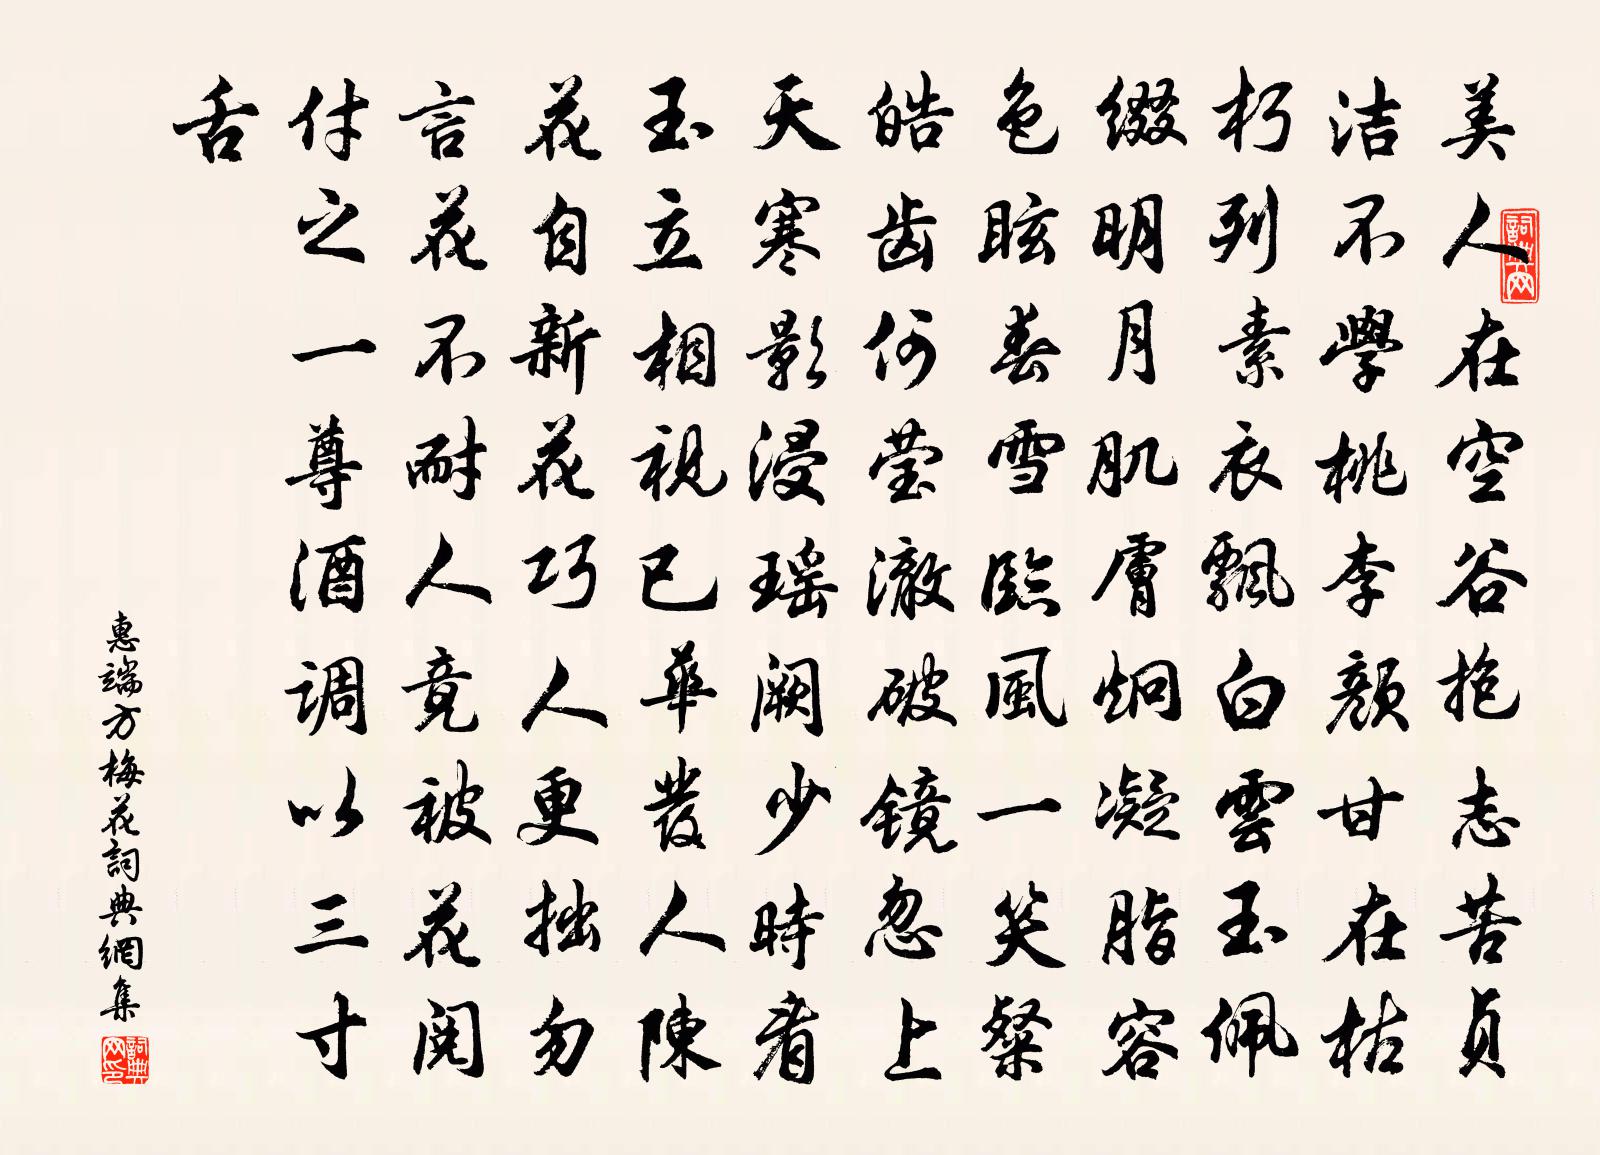 美人在空谷抱志苦貞
洁不學桃李顏甘在枯
朽列素衣飄白雲玉佩
綴明月肌膚炯凝脂容
色眩春雪臨風一笑粲
皓齿何莹澈破镜忽上
天寒影浸瑶阙少時看
玉立相視已華發人陳
花自新花巧人更拙勿
言花不耐人竟被花閱
付之一尊酒调以三寸
舌
惠端方梅花詞典網集
詞典网
詞典网印